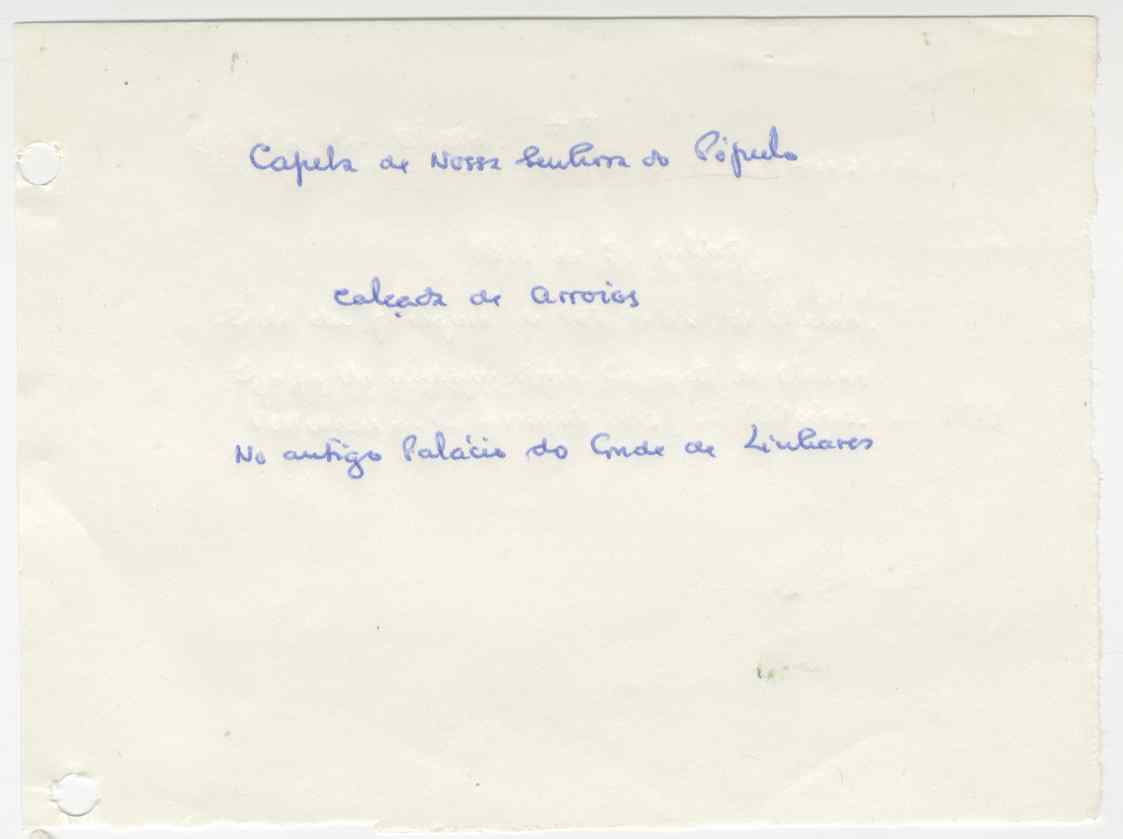 Capela de Nossa Senhora do Pópulo
calçada de Arroios
No antigo Palácio do Conde de Linhares